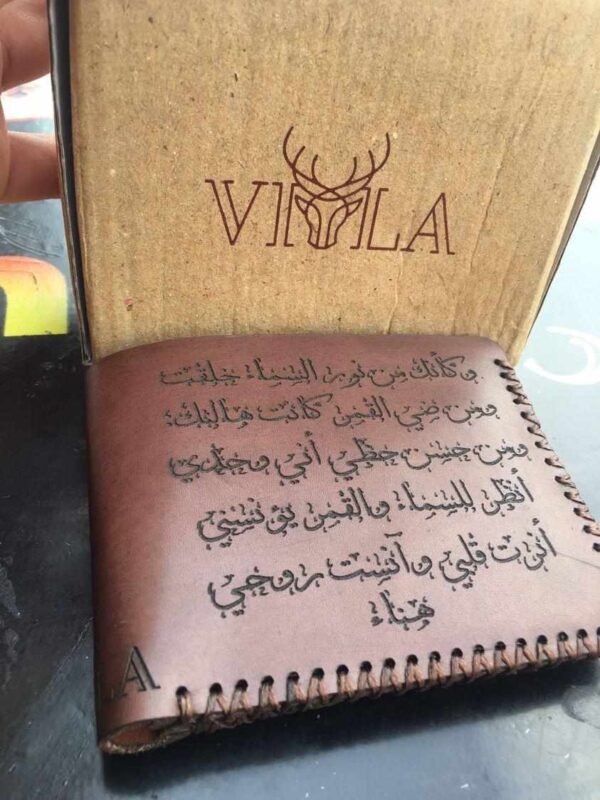 VIOLA
وكأنك من نور السماء خلقت
ومن ضي القمر كانت هالتك؛
ومن حسن حظي أني وحدي
أنظر للسماء والقمر يؤنسني
أنرت قلبي وآنست روحي
هناء
LA